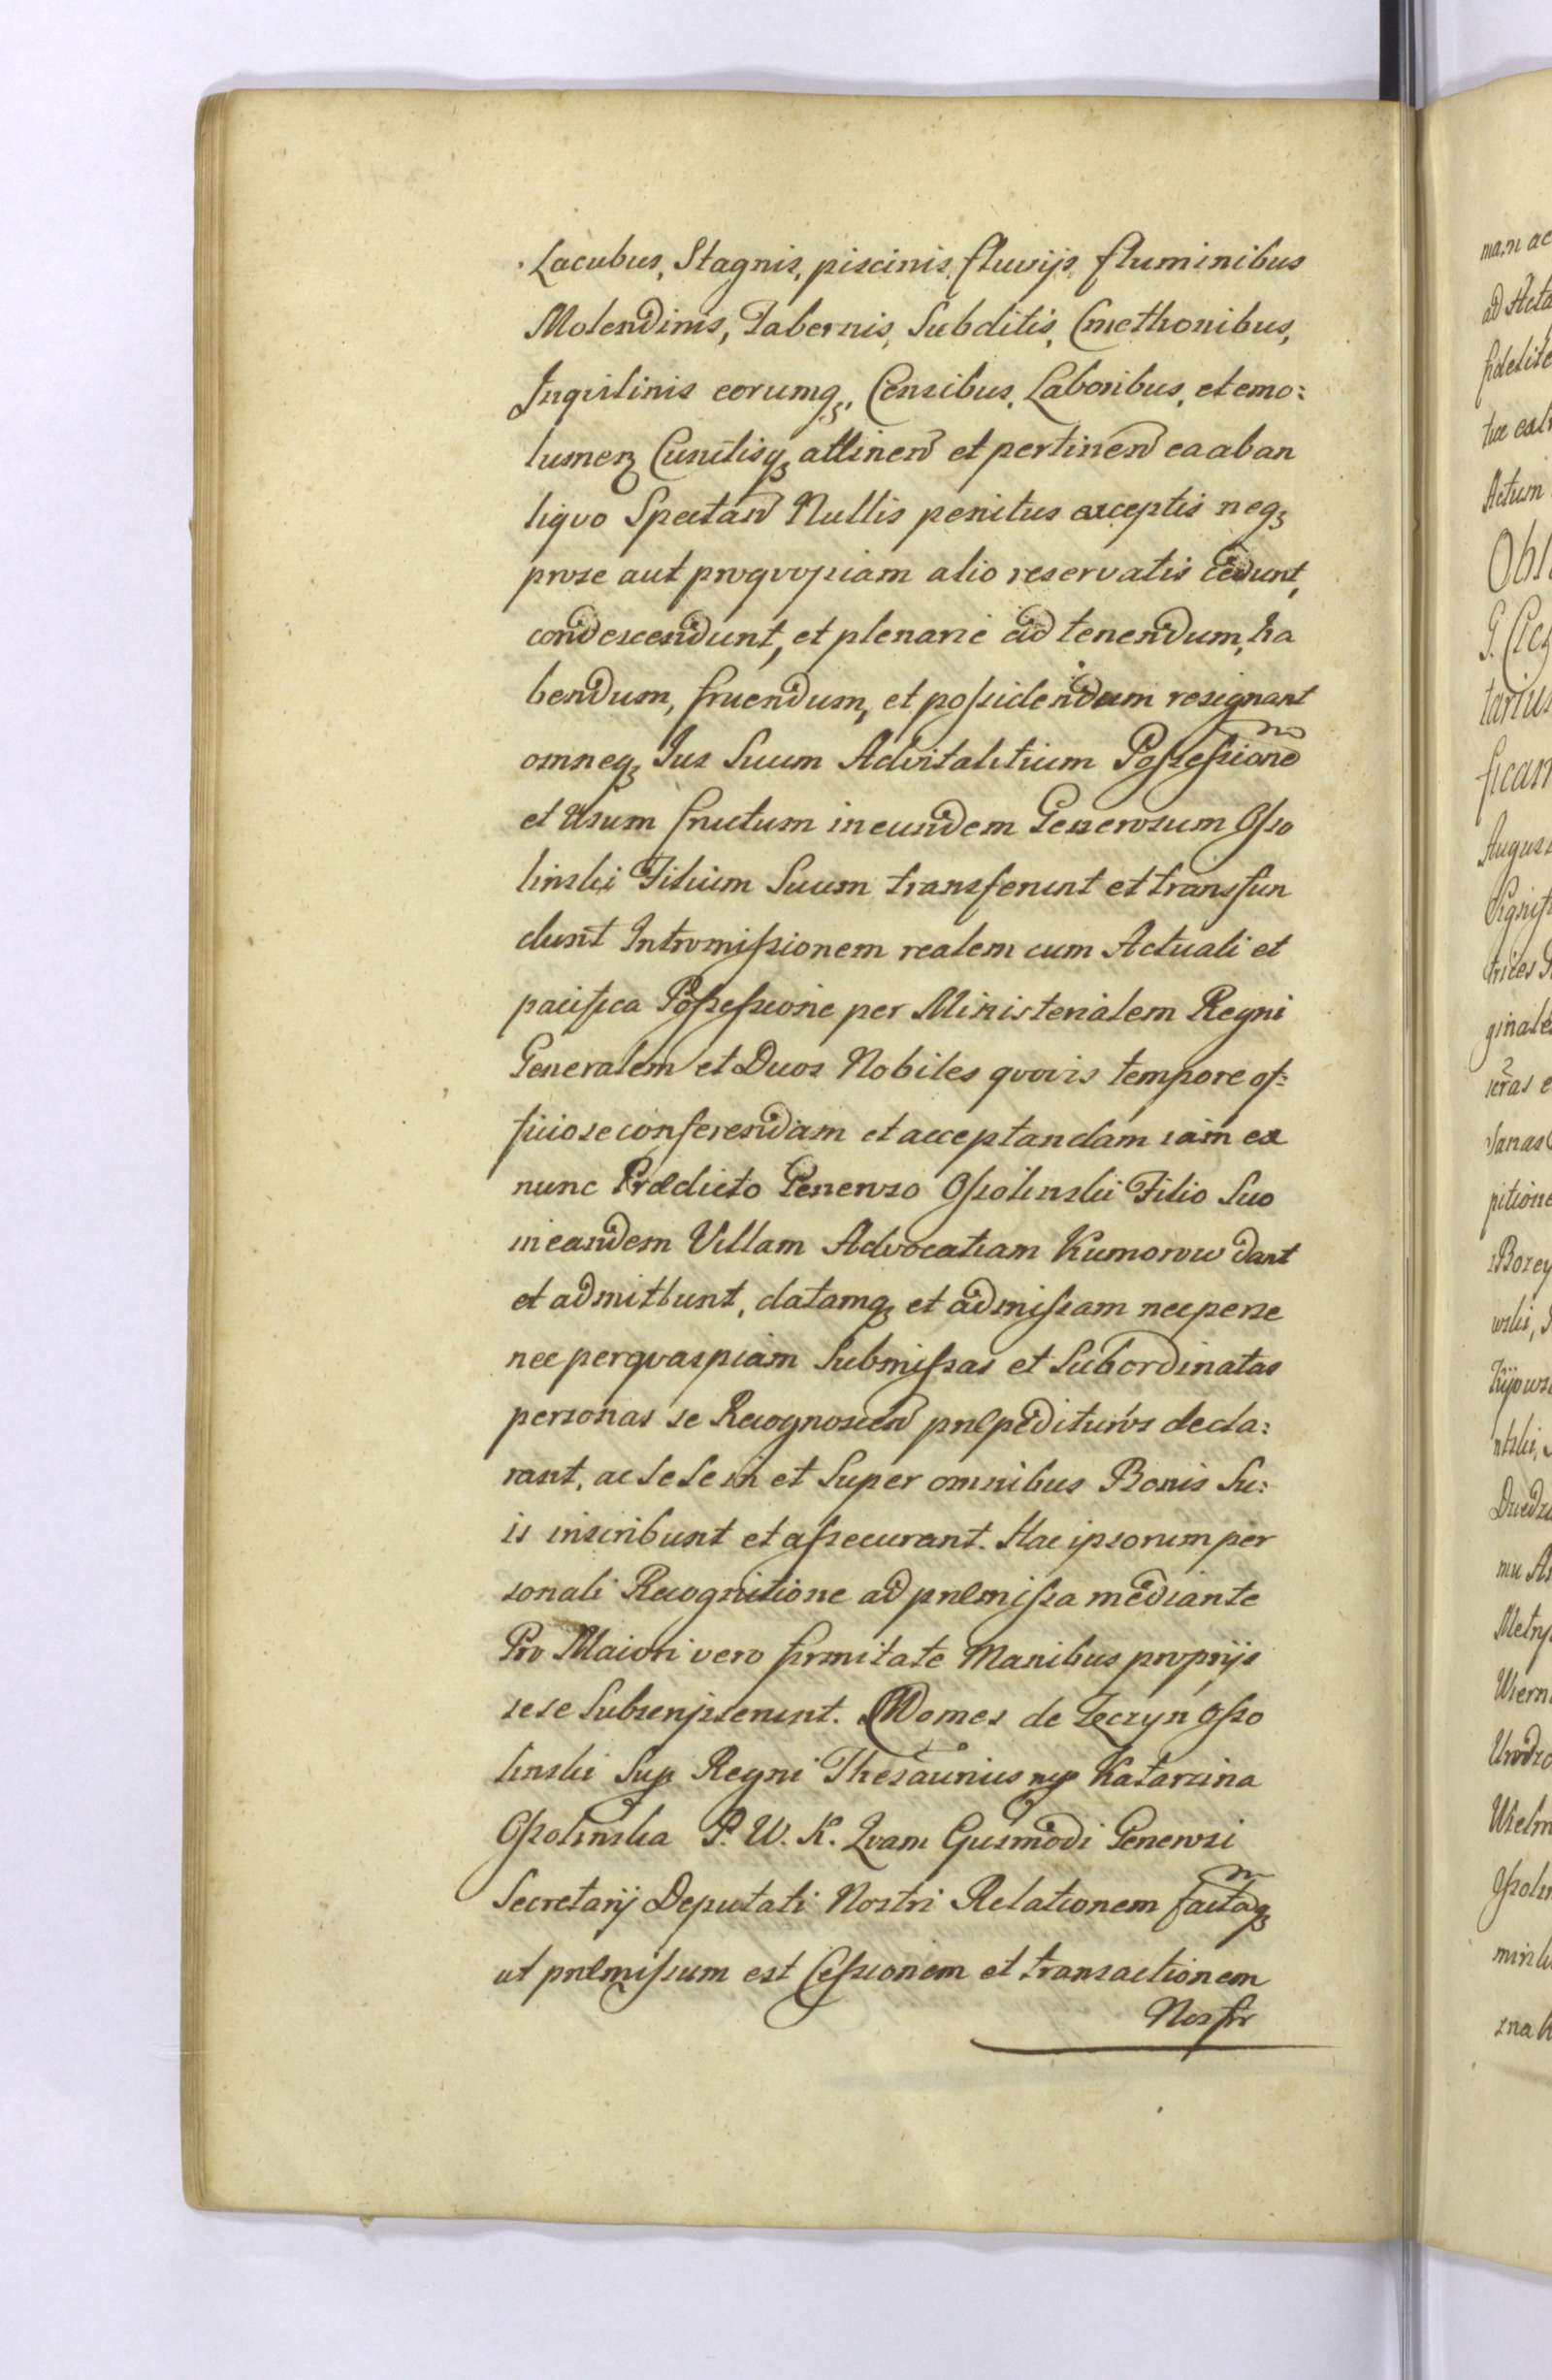 Lacubus, Stagnis, piscinis, fluvijs, fluminibus
Molendinis, Tabernis, Subditis, Cmethonibus,
Inqvilinis eorumq3, Censibus, Laboribus, et emo:
lumen Cunctisq3 attinen et pertinen ea ab an
liqvo Spectan Nullis penitus exceptis neq3
prose aut proqvopiam alio reservatis cedunt,
condescendunt, et plenarie ad tenendum, ha
bendum, fruendum, et poſsidendum resignant
omneq3 Jus Suum Advitalitium Poſseſsione
et Usum fructum in eundem Generosum Oſso
linski Filium Suum transferunt et transfun
dunt Intromiſsionem realem cum Actuali et
pacifica Poſseſsione per Ministerialem Regni
Generalem et Duos Nobiles qvovis tempore of:
ficiose conferendam et acceptandam iam ex
nunc Prædicto Generoso Oſsolinski Filio Suo
in eandem Villam Advocatiam Kumorow dant
et admittunt, datamq3 et admiſsam nec perse
nec perqvaspiam Submiſsas et Subordinatas
personas se Recognoscen præpedituros decla:
rant, ac Sese in et Super omnibus Bonis Su:
is inscribunt et aſsecurant. Hac ipsorum per
sonali Recognitione ad præmiſsa mediante
Pro Maiori vero firmitate Manibus proprijs
sese Subscripserunt. Comes de Teczyn Oſso
linski Sup Regni Thesaurius mp Katarzina
Oſsolinska P. W. K. Qvam Eiusmodi Generosi
Secretarij Deputati Nostri Relationem factaq3
ut præmiſsum est Ceſsionem et transactionem
Nos

man ac
ad Acta
fidelite
tæ ext
Actum
Obl
tarius
ficam
Augus
ginale